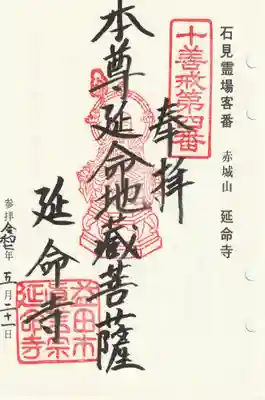 石見霊場客番 赤城山 延命寺
十善戒第四番
奉拝
本尊延命地蔵菩薩
延命寺
参拝 令和二年 五月二十一日